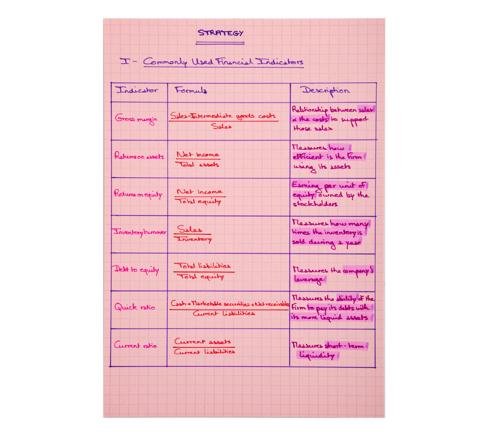 STRATEGY
I - Commonly Used Financial Indicators
Indicator Formula Description
Gross margin
Sales-Intermediate goods costs
Sales
Relationship between sales
& the costs to support
those sales
Return on assets
Net income
Total assets
Measures how
efficient is the firm
using its assets
Return on equity
Net income
Total equity
Earning per unit of
equity owned by the
stockholders
Inventory turnover
Sales
Inventory
Measures how many
times the inventory is
sold during a year
Debt to equity
Total liabilities
Total equity
Measures the company's
leverage
Quick ratio
Cash + Marketable securities + Net receivables
Current liabilities
Measures the ability of the
Firm to pay its debts with
its more liquid assets
Current ratio
Current assets
Current liabilities
Measures short-term
liquidity